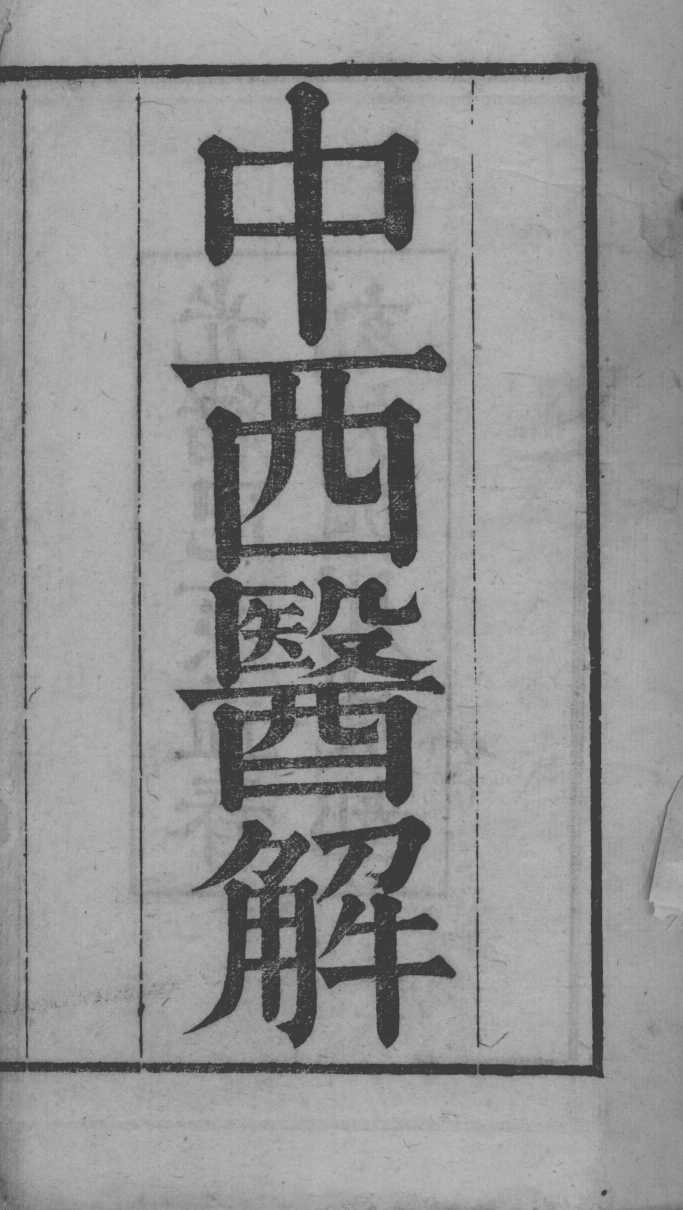 中西醫解